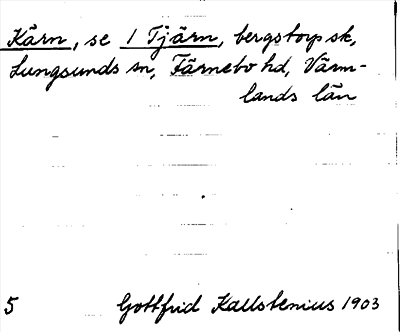 Kärn, se 1 Tjärn, bergstorp sk,
Lungsunds sn, Färnebo hd, Värm-
lands län
5 Gottfrid Kallstenius 1903